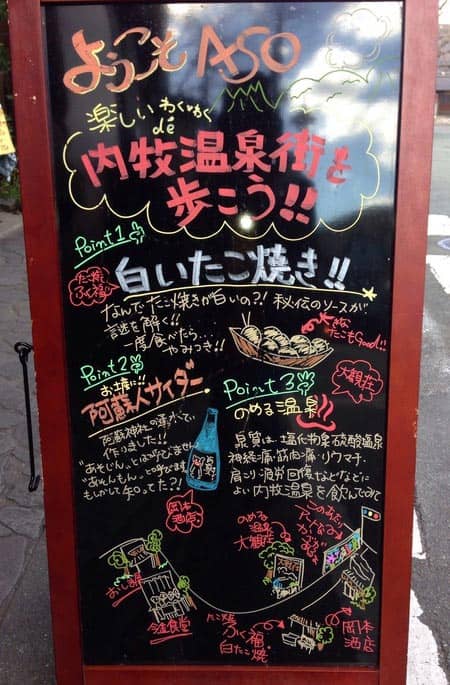 ようこそ ASO
楽しい わくわく
dé
内牧温泉街を
歩こう!!
Point 1
たこ焼
ふく福
白いたこ焼き!!
なんでたこ焼きが白いの?! 秘伝のソースが
謎を解く!!
一度食べたら…
やみつき!!
大きな
たこもGood!!
Point 2
お土産に!!
阿蘇人サイダー
阿蘇神社の湧水で
作りました!!
"あそじん"とは呼びません
"あそんもん"と呼びます
もしかして知ってた?!
岡本
酒店
Point 3
のめる温泉
大観荘
泉質は、塩化物泉・硫酸塩温泉
神経痛・筋肉痛・リウマチ
肩こり・疲労回復などなどに
よい内牧温泉を飲んでみて
のめる
温泉
大観荘
このあたり
アートな
かべが
今金食堂
たこ焼
ふく福
白たこ焼
岡本
酒店